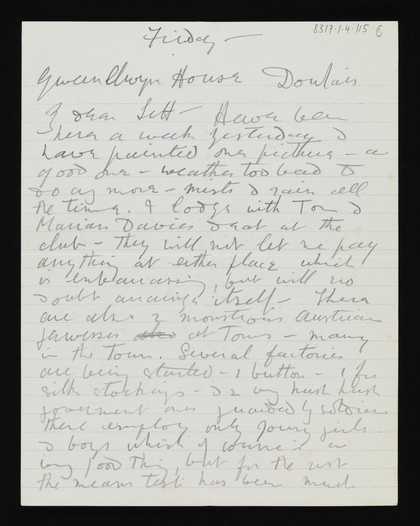 8317.1.4.115 6
Friday —
Gwernllwyn House Dowlais
My dear Sett — Have been
here a week yesterday &
have painted one picture — a
good one — weather too bad to
do any more — mists & rain all
the time. I lodge with Tom &
Marian Davies & eat at the
club — they will not let me pay
anything at either place which
is embarrassing, but will no
doubt arrange itself — There
are also 2 monstrous Austrian
Jewesses at Toms — many
in the Town. Several factories
are being started — 1 button — 1 for
silk stockings — & 2 very hush hush
government ones guarded by soldiers
these employ only young girls
& boys which of course is a
very good thing, but for the rest
the means test has been much